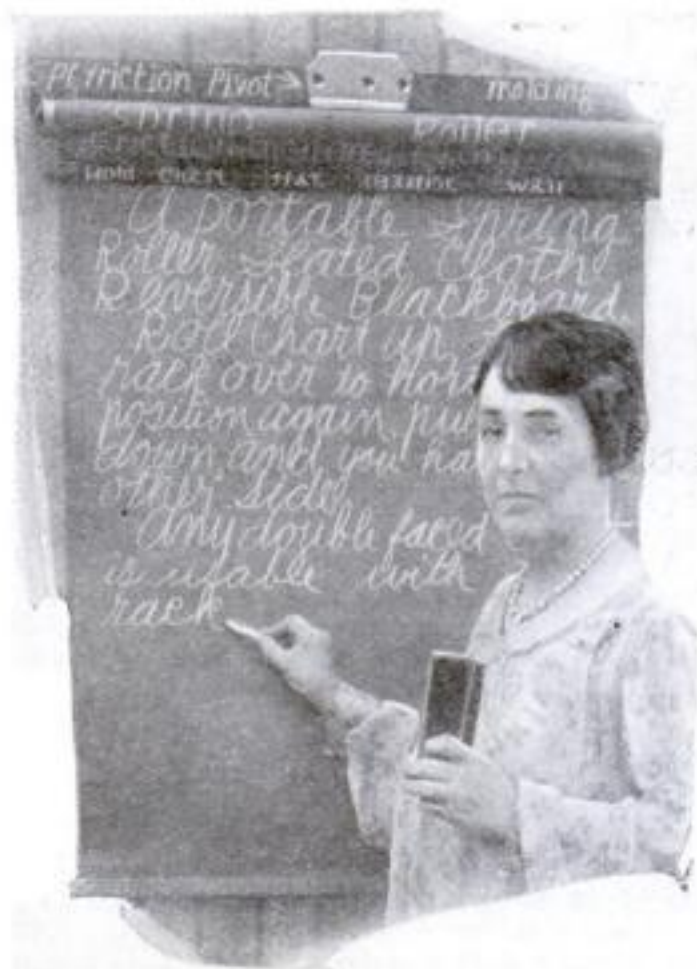 Friction Pivot Molding
Spring Roller
HOLD CHART FLAT AGAINST WALL
A portable Spring
Roller Slated Cloth
Reversible Blackboard.
Roll Chart up
rack over to
position again, pull
down, and you
other side.
Any double faced
is usable with
rack